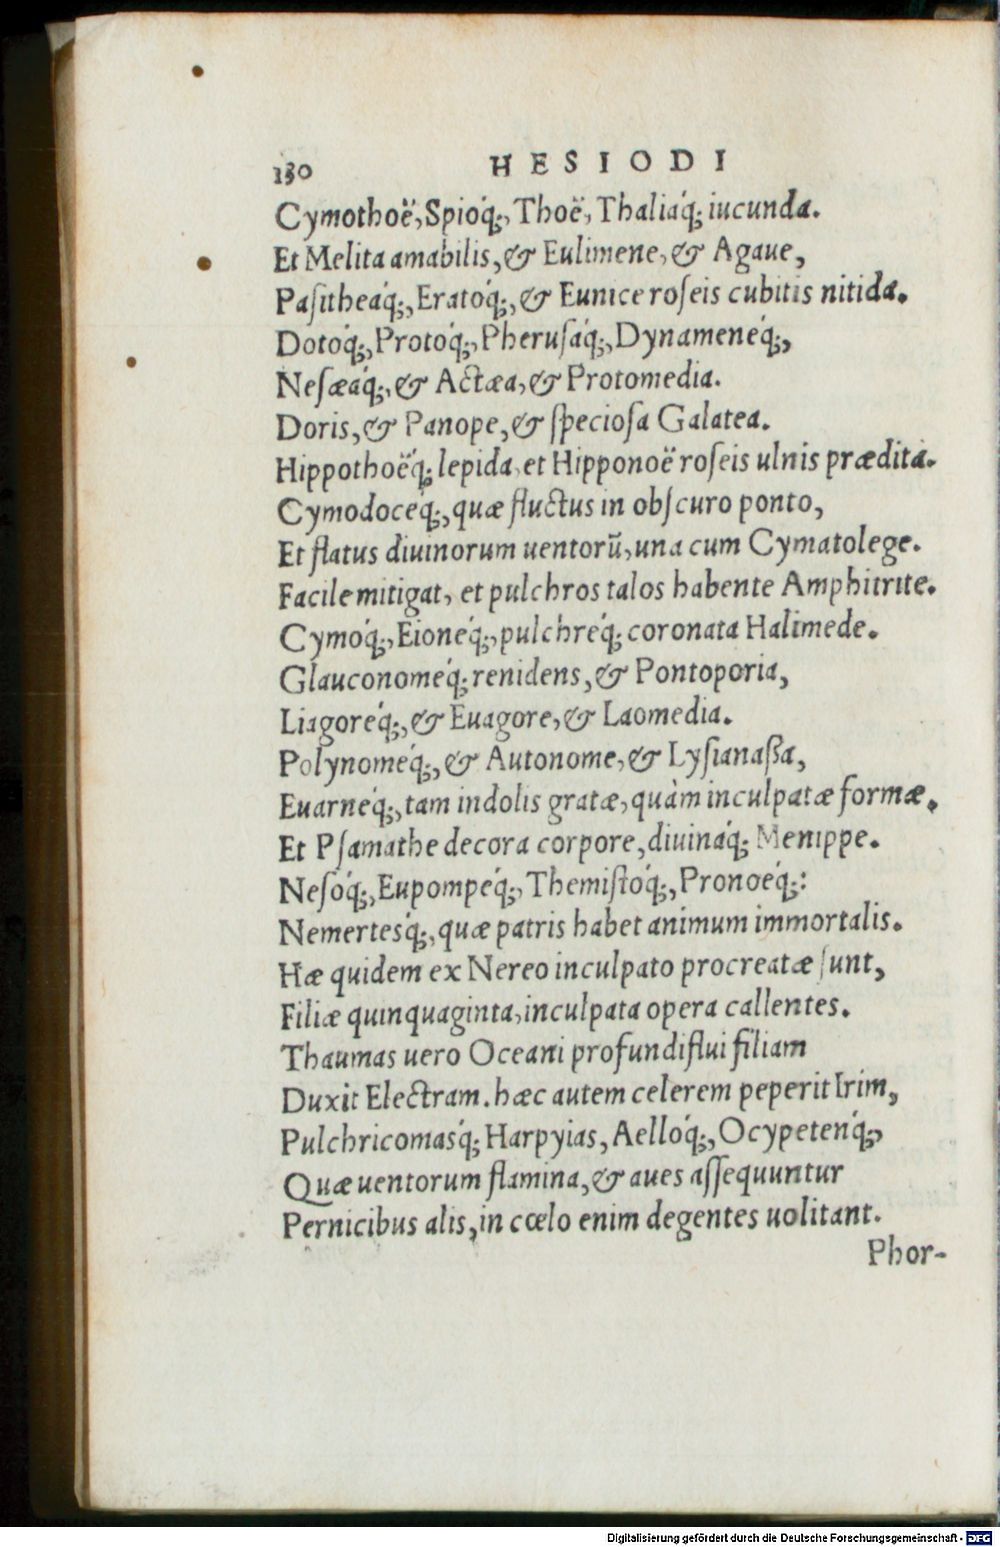 130 HESIODI
Cymothoë, Spioq́;, Thoë, Thaliaq́; iucunda.
Et Melita amabilis, & Eulimene, & Agaue,
Pasitheaq́;, Eratoq́;, & Eunice roseis cubitis nitida.
Dotoq́;, Protoq́;, Pherusaq́;, Dynameneq́;,
Nesæaq́;, & Actæa, & Protomedia.
Doris, & Panope, & speciosa Galatea.
Hippothoëq́; lepida, et Hipponoë roseis ulnis prædita.
Cymodoceq́;, quæ fluctus in obscuro ponto,
Et flatus diuinorum uentorũ, una cum Cymatolege.
Facile mitigat, et pulchros talos habente Amphitrite.
Cymoq́;, Eioneq́;, pulchreq́; coronata Halimede.
Glauconomeq́; renidens, & Pontoporia,
Liagoreq́;, & Euagore, & Laomedia.
Polynomeq́;, & Autonome, & Lysianaßa,
Euarneq́;, tam indolis gratæ, quàm inculpatæ formæ.
Et Psamathe decora corpore, diuinaq́; Menippe.
Nesoq́;, Eupompeq́;, Themistoq́;, Pronoeq́;:
Nemertesq́;, quæ patris habet animum immortalis.
Hæ quidem ex Nereo inculpato procreatæ sunt,
Filiæ quinquaginta, inculpata opera callentes.
Thaumas uero Oceani profundiflui filiam
Duxit Electram. hæc autem celerem peperit Irim,
Pulchricomasq́; Harpyias, Aelloq́;, Ocypetenq́;,
Quæ uentorum flamina, & aues assequuntur
Pernicibus alis, in cœlo enim degentes uolitant.
Phor-
Digitalisierung gefördert durch die Deutsche Forschungsgemeinschaft - DFG